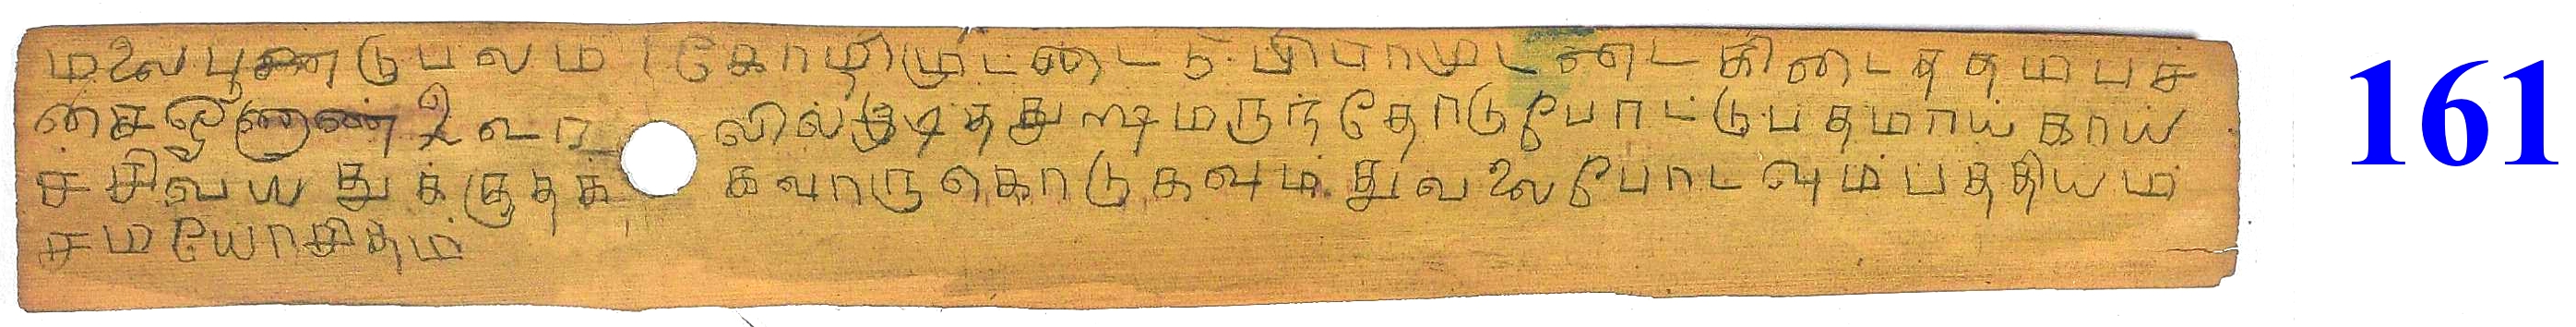 மலைபூணடுபலம கோழிமுட்டை ௫ பிராமுடடை கிடைததம பச
சை ஓணான் ௨ வா லில் இடிதது மருந்தோடு போட்டு பதமாய் காய்
ச சிவயதுக்குதக் கவாருகொடுகவும் துவலைபோடவும் பததியம்
சமயோசிதம்
161